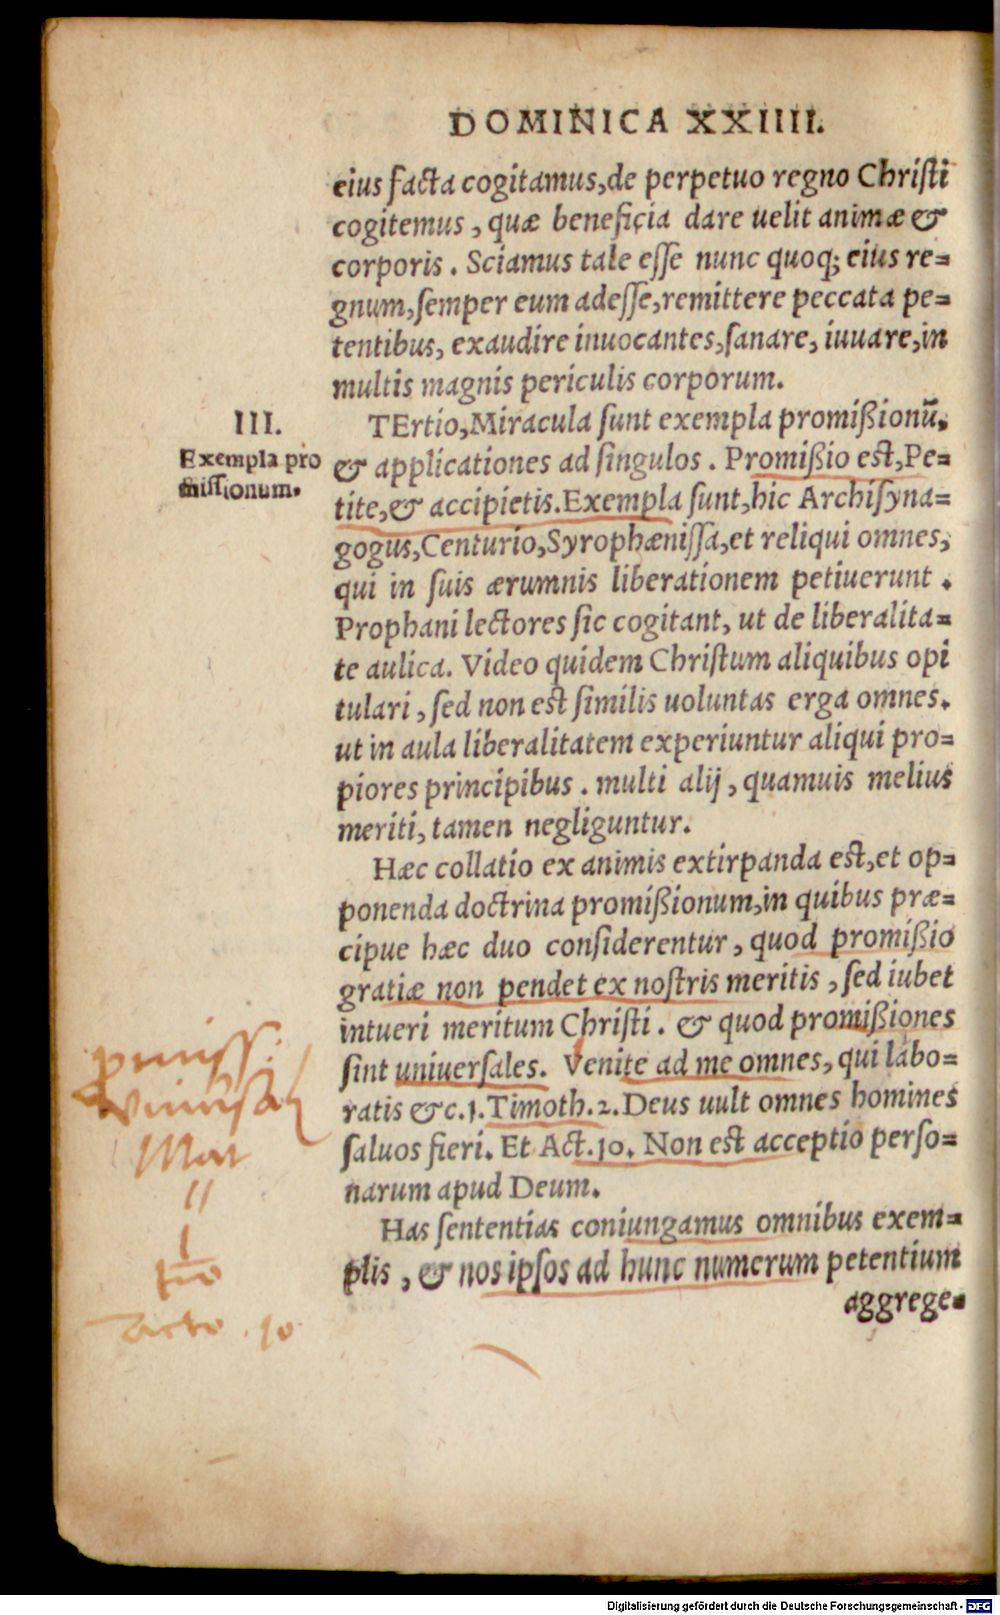 DOMINICA XXIIII.
eius facta cogitamus,de perpetuo regno Chriſti
cogitemus , quæ beneficia dare uelit animæ &
corporis . Sciamus tale eſſe nunc quoq; eius re=
gnum,ſemper eum adeſſe,remittere peccata pe=
tentibus, exaudire inuocantes,ſanare, iuuare,in
multis magnis periculis corporum.
III.
TErtio,Miracula ſunt exempla promißionū.
Exempla pro
miſſionum.
& applicationes ad ſingulos . Promißio est,Pe=
tite,& accipietis.Exempla ſunt,hic Archiſyna=
gogus,Centurio,Syrophæniſſa,et reliqui omnes,
qui in ſuis ærumnis liberationem petiuerunt .
Prophani lectores ſic cogitant, ut de liberalita=
te aulica. Video quidem Chriſtum aliquibus opi
tulari , ſed non est ſimilis uoluntas erga omnes.
ut in aula liberalitatem experiuntur aliqui pro=
piores principibus . multi alij , quamuis melius
meriti, tamen negliguntur.
Hæc collatio ex animis extirpanda est,et op=
ponenda doctrina promißionum,in quibus præ=
cipue hæc duo conſiderentur , quod promißio
gratiæ non pendet ex noſtris meritis , ſed iubet
intueri meritum Chriſti . & quod promißiones
ſint uniuerſales. Venite ad me omnes, qui labo=
ratis &c.1.Timoth.2.Deus uult omnes homines
ſaluos fieri. Et Act.10. Non est acceptio perſo=
narum apud Deum.
Has ſententias coniungamus omnibus exem=
plis , & nos ipſos ad hunc numerum petentium
aggrege=
Mat
11
1
10
Digitalisierung gefördert durch die Deutsche Forschungsgemeinschaft - DFG